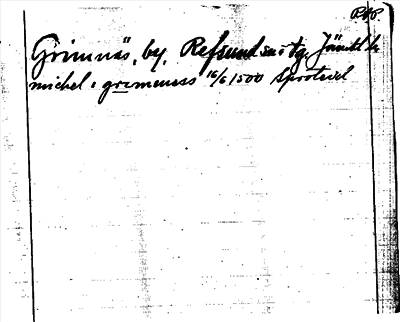 P.N.P.
Grimnäs, by, Refsund sn o tg. Jämtl. l.
michel i grimeness 16/6 1500 Sproteed